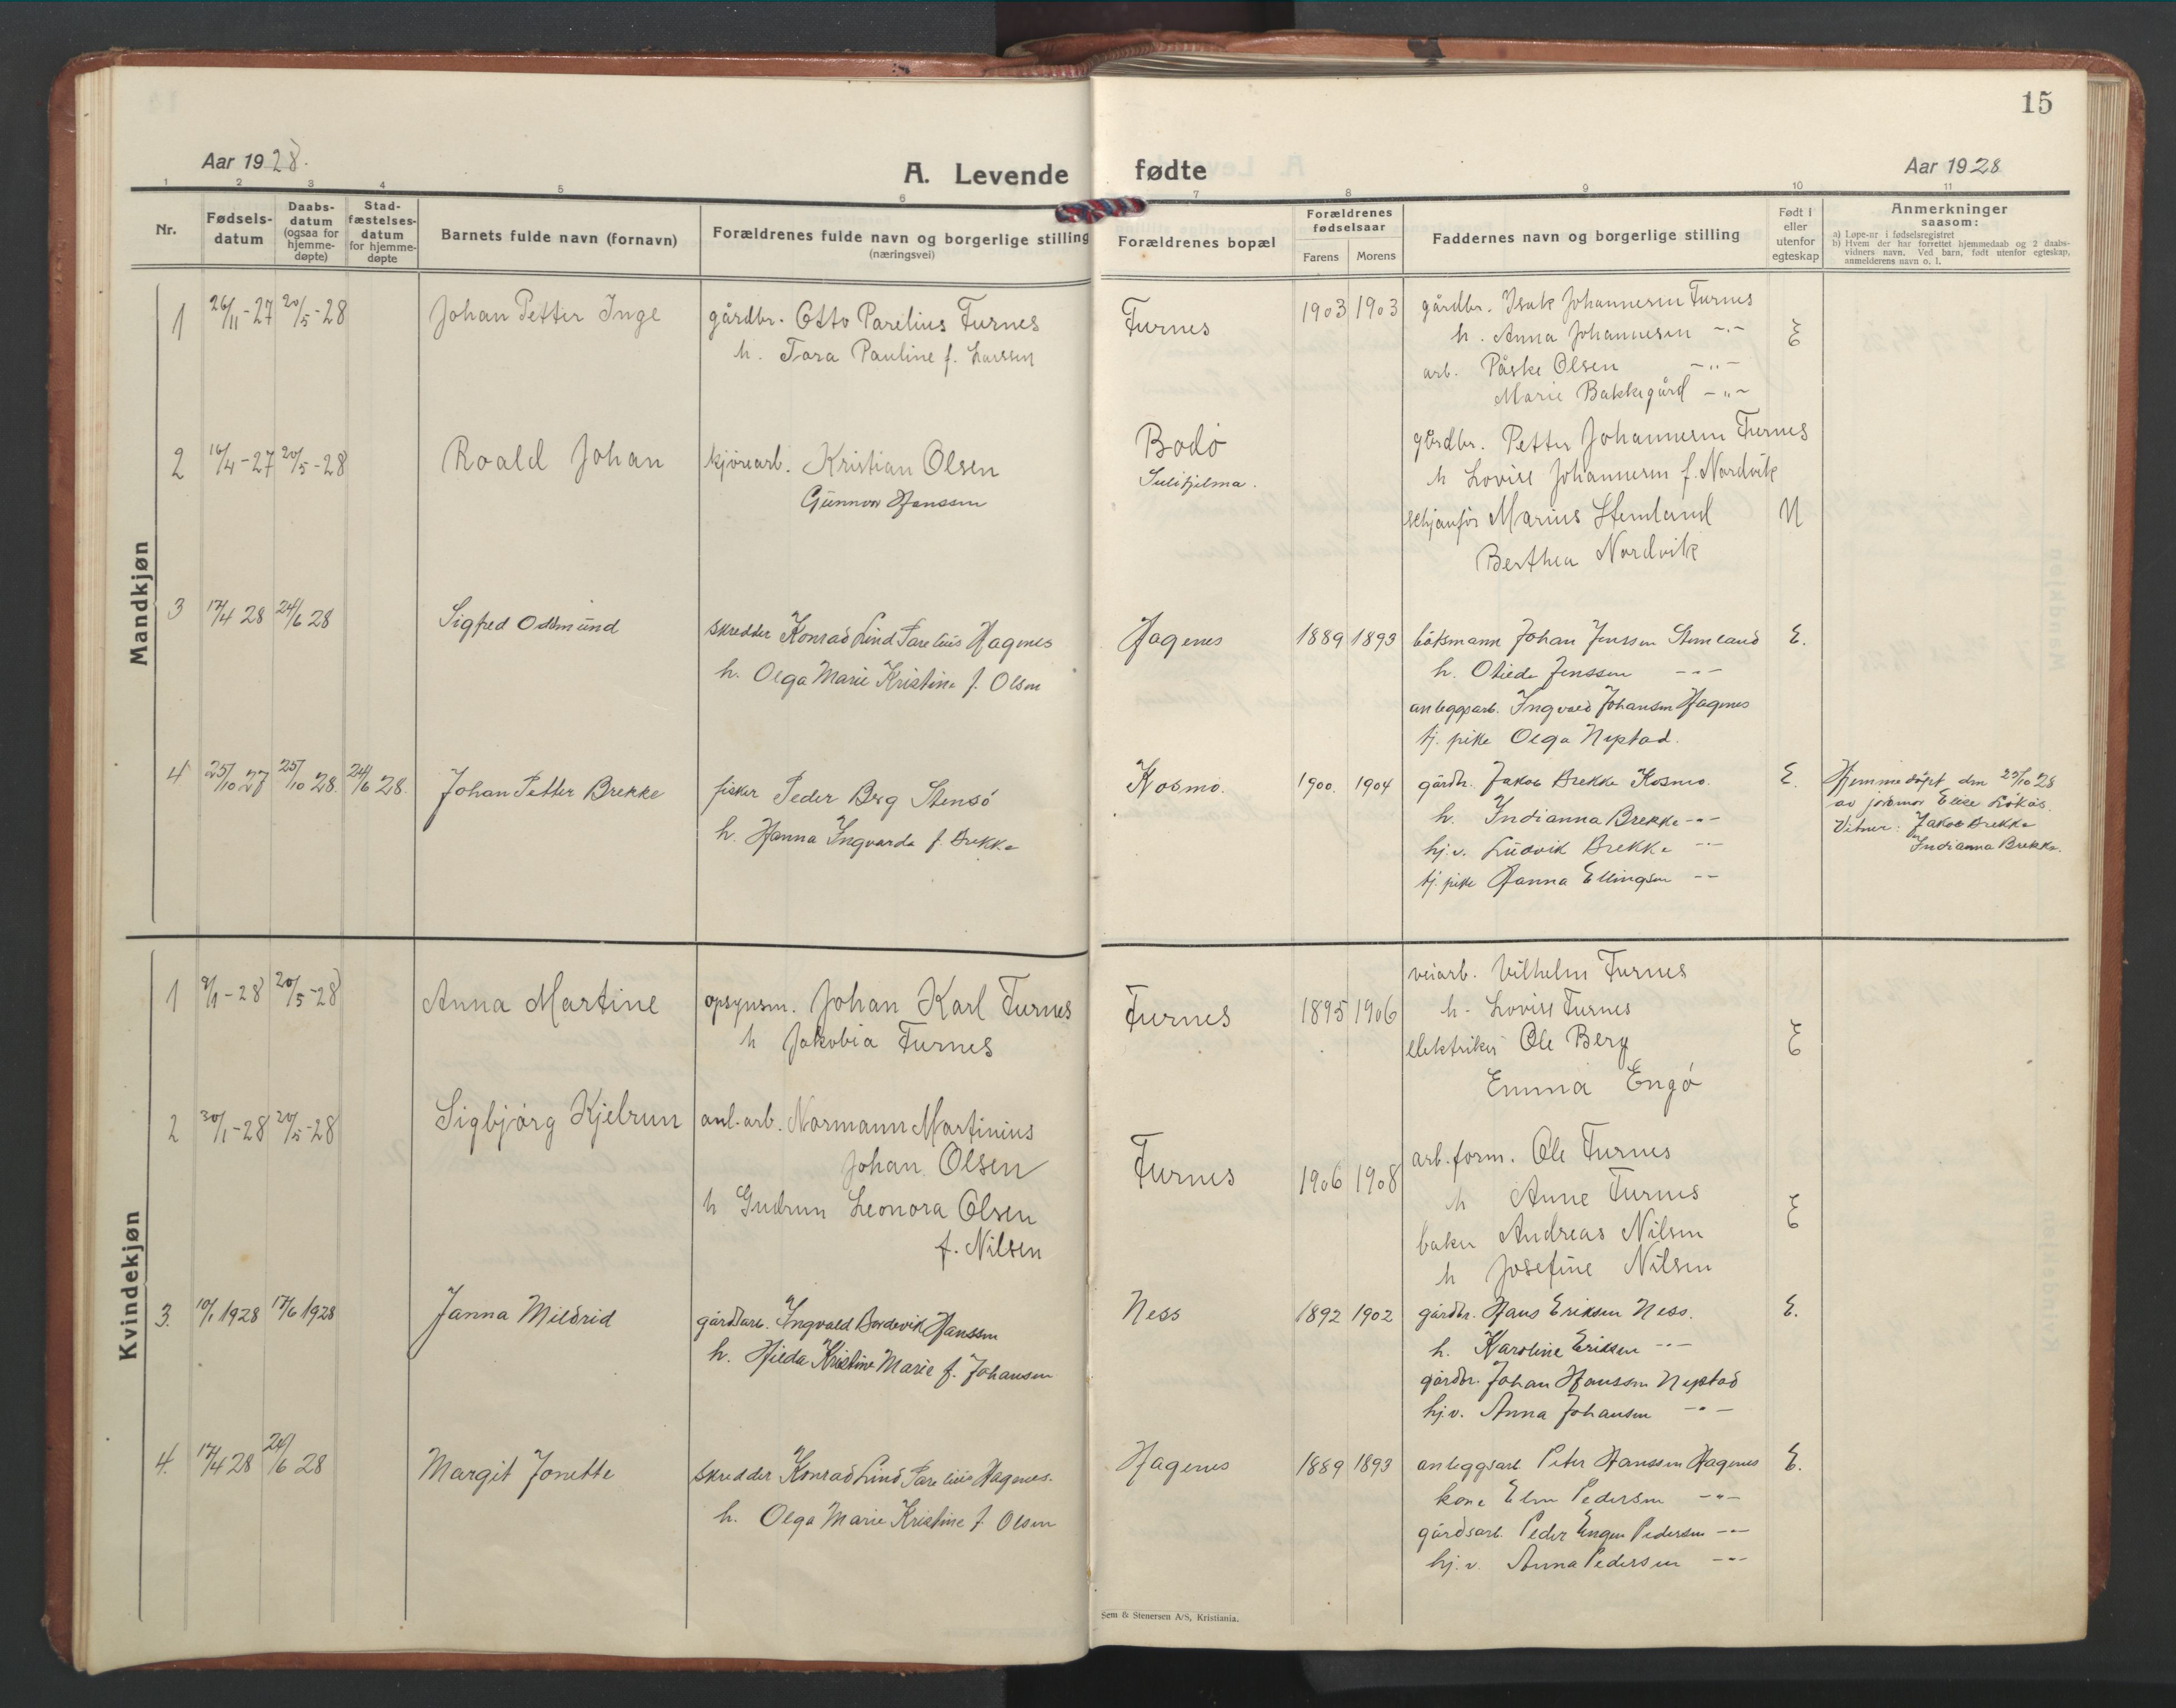 15
Aar 1928.
A. Levende fødte
Aar 1928
1 2 3 4 5 6 7 8 9 10 11
Nr.
Fødsels-datum
Daabs-datum (ogsaa for hjemme-døpte)
Stad-fæstelses-datum for hjemme-døpte
Barnets fulde navn (fornavn)
Forældrenes fulde navn og borgerlige stilling
(næringsvei)
Forældrenes bopæl
Forældrenes fødselsaar
Farens Morens
Faddernes navn og borgerlige stilling
Født i eller utenfor egteskap
Anmerkninger
saasom:
a) Løpe-nr i fødselsregistret
b) Hvem der har forrettet hjemmedaab og 2 daabs-
vidners navn. Ved barn, født utenfor egteskap,
anmelderens navn o. l.
Mandkjøn
1 26/11-27 20/5-28 Johan Petter Inge
gårdbr. Otto Parelius Furnes
h. Tora Pauline f. Larssen
Furnes 1903 1903
gårdbr. Isak Johannesen Furnes
h. Anna Johannesen -"-
arb. Påske Olsen -"-
Marie Bakkegård -"-
E
2 16/4-27 20/5-28 Roald Johan
kjörearb. Kristian Olsen
Gunnor Hanssen
Bodø
Sulitjelma.
gårdbr. Petter Johannesen Furnes
h Lovise Johannesen f. Nordvik
Marius Stemland
Berthea Nordvik
N
3 17/4 28 24/6 28 Sigfred Oddmund
skredder Konrad Lind Parelius Hagenes
h. Olga Marie Kristine f. Olsen
Hagenes 1889 1893
båtsmann Johan Jenssen Stemland
h. Otilde Jenssen -"-
anleggsarb. Ingvald Johansen Hagenes
tj. pike Olga Nystad.
E.
4 25/10 27 25/10 28. 24/6 28. Johan Petter Brekke
fisker Peder Berg Stensö
h. Hanna Ingvarda f. Brekke
Kosmo. 1900. 1904
gårdbr. Jakob Brekke Kosmo.
h. Indianna Brekke -"-
hj.v. Ludvik Brekke -"-
tj. pike Hanna Ellingsen -"-
E.
Hjemmedöpt den 25/10 28
av jordmor Elise Lökås.
Vitner: Jakob Brekke
Indianna Brekke.
Kvindekjøn
1 9/1-28 20/5-28 Anna Martine
opsynsm. Johan Karl Furnes
h Jakobia Furnes
Furnes 1895 1906
veiarb. Vilhelm Furnes
h. Lovise Furnes
elektriker Ole Berg
Emma Engø
E
2 30/1-28 20/5-28 Sigbjørg Kjelrun
anl.arb. Normann Martinius
Johan Olsen
h Gudrun Leonora Olsen
f. Nilsen
Furnes 1906 1908
arb.form. Ole Furnes
h Anne Furnes
baker Andreas Nilsen
h Josefine Nilsen
E
3. 10/1 1928 17/6 1928 Janna Mildrid
gårdarb. Ingvald Bordevik Hanssen
h. Hilda Kristine Marie f. Johansen
Ness 1892 1902
gårdbr. Hans Eriksen Ness.
h. Karoline Eriksen -"-
gårdbr. Johan Hanssen Nystad
hj.v. Anna Johansen -"-
E.
4. 17/4 28 24/6 28 Margit Jonette
skredder Konrad Lind Parelius Hagenes.
h. Olga Marie Kristine f. Olsen
Hagenes 1889 1893
anleggsarb. Peter Hanssen Hagenes
kone Elen Pedersen -"-
gårdsarb. Peder Engen Pedersen -"-
hj.v. Anna Pedersen -"-
E.
Sem & Stenersen A/S, Kristiania.